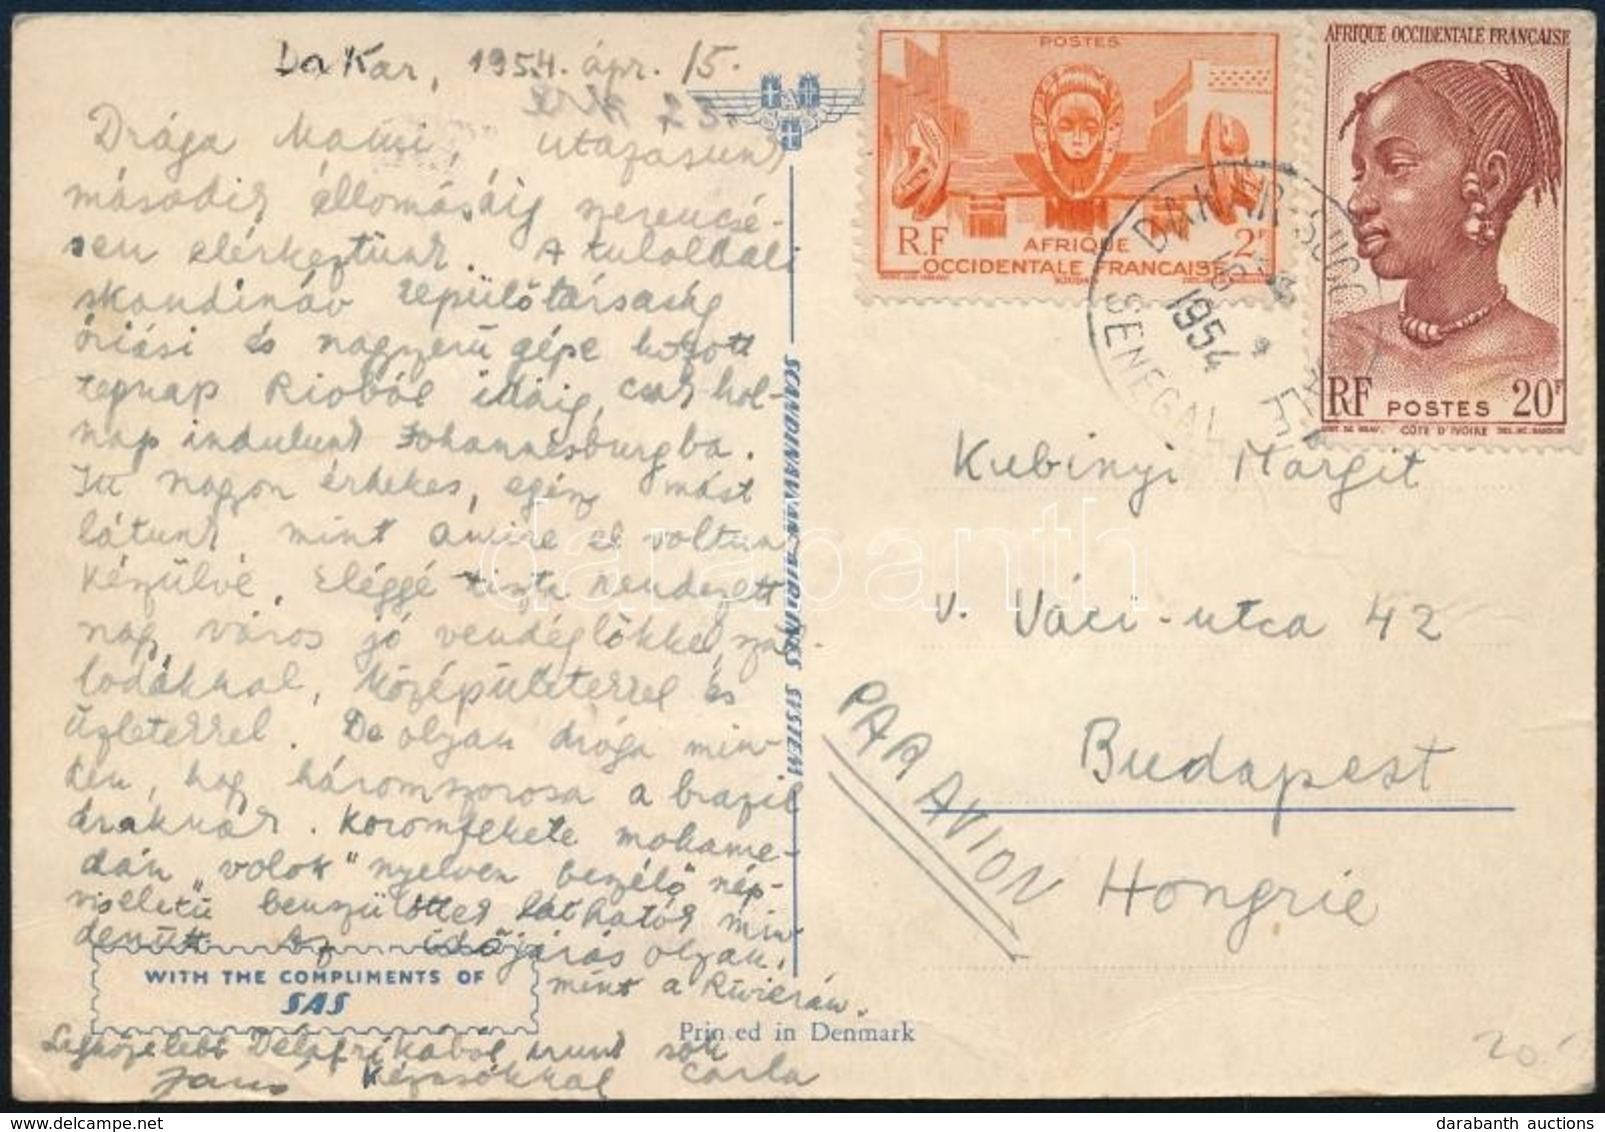 Dakar, 1954. ápr. 15.
Drága Mausi, utazásunk
második állomásáig szerencsé-
sen elérkeztünk. A túloldali
skandináv repülőtársaság
óriási és nagyszerű gépe hozott
tegnap Rioból idáig, csak hol-
nap indulunk Johannesburgba.
Itt nagyon érdekes, egész mást
látunk, mint amire el voltunk
készülve. Eléggé tiszta rendezett
nagy város jó vendéglőkkel, szál-
lodákkal, középületekkel és
üzletekkel. De olyan drága min-
den, hogy háromszorosa a brazil
áraknak. Koromfekete mohame-
dán "volok" nyelven beszélő nép-
viseletű benszülöttek láthatók min-
denütt. Az időjárás olyan,
mint a Rivierán.
Legközelebb Délafrikából írunk sok
Janos kézcsókkal Carla
WITH THE COMPLIMENTS OF
SAS
Prin ed in Denmark
SCANDINAVIAN AIRLINES SYSTEM
POSTES
RF
AFRIQUE
OCCIDENTALE FRANÇAISE
2F
AFRIQUE OCCIDENTALE FRANÇAISE
RF POSTES 20F
CÔTE D'IVOIRE
DAKAR SUCC
1954
SENEGAL
Kubinyi Margit
V. Váci-utca 42
Budapest
Hongrie
PAR AVION
20
darabanth
darabanth auctions